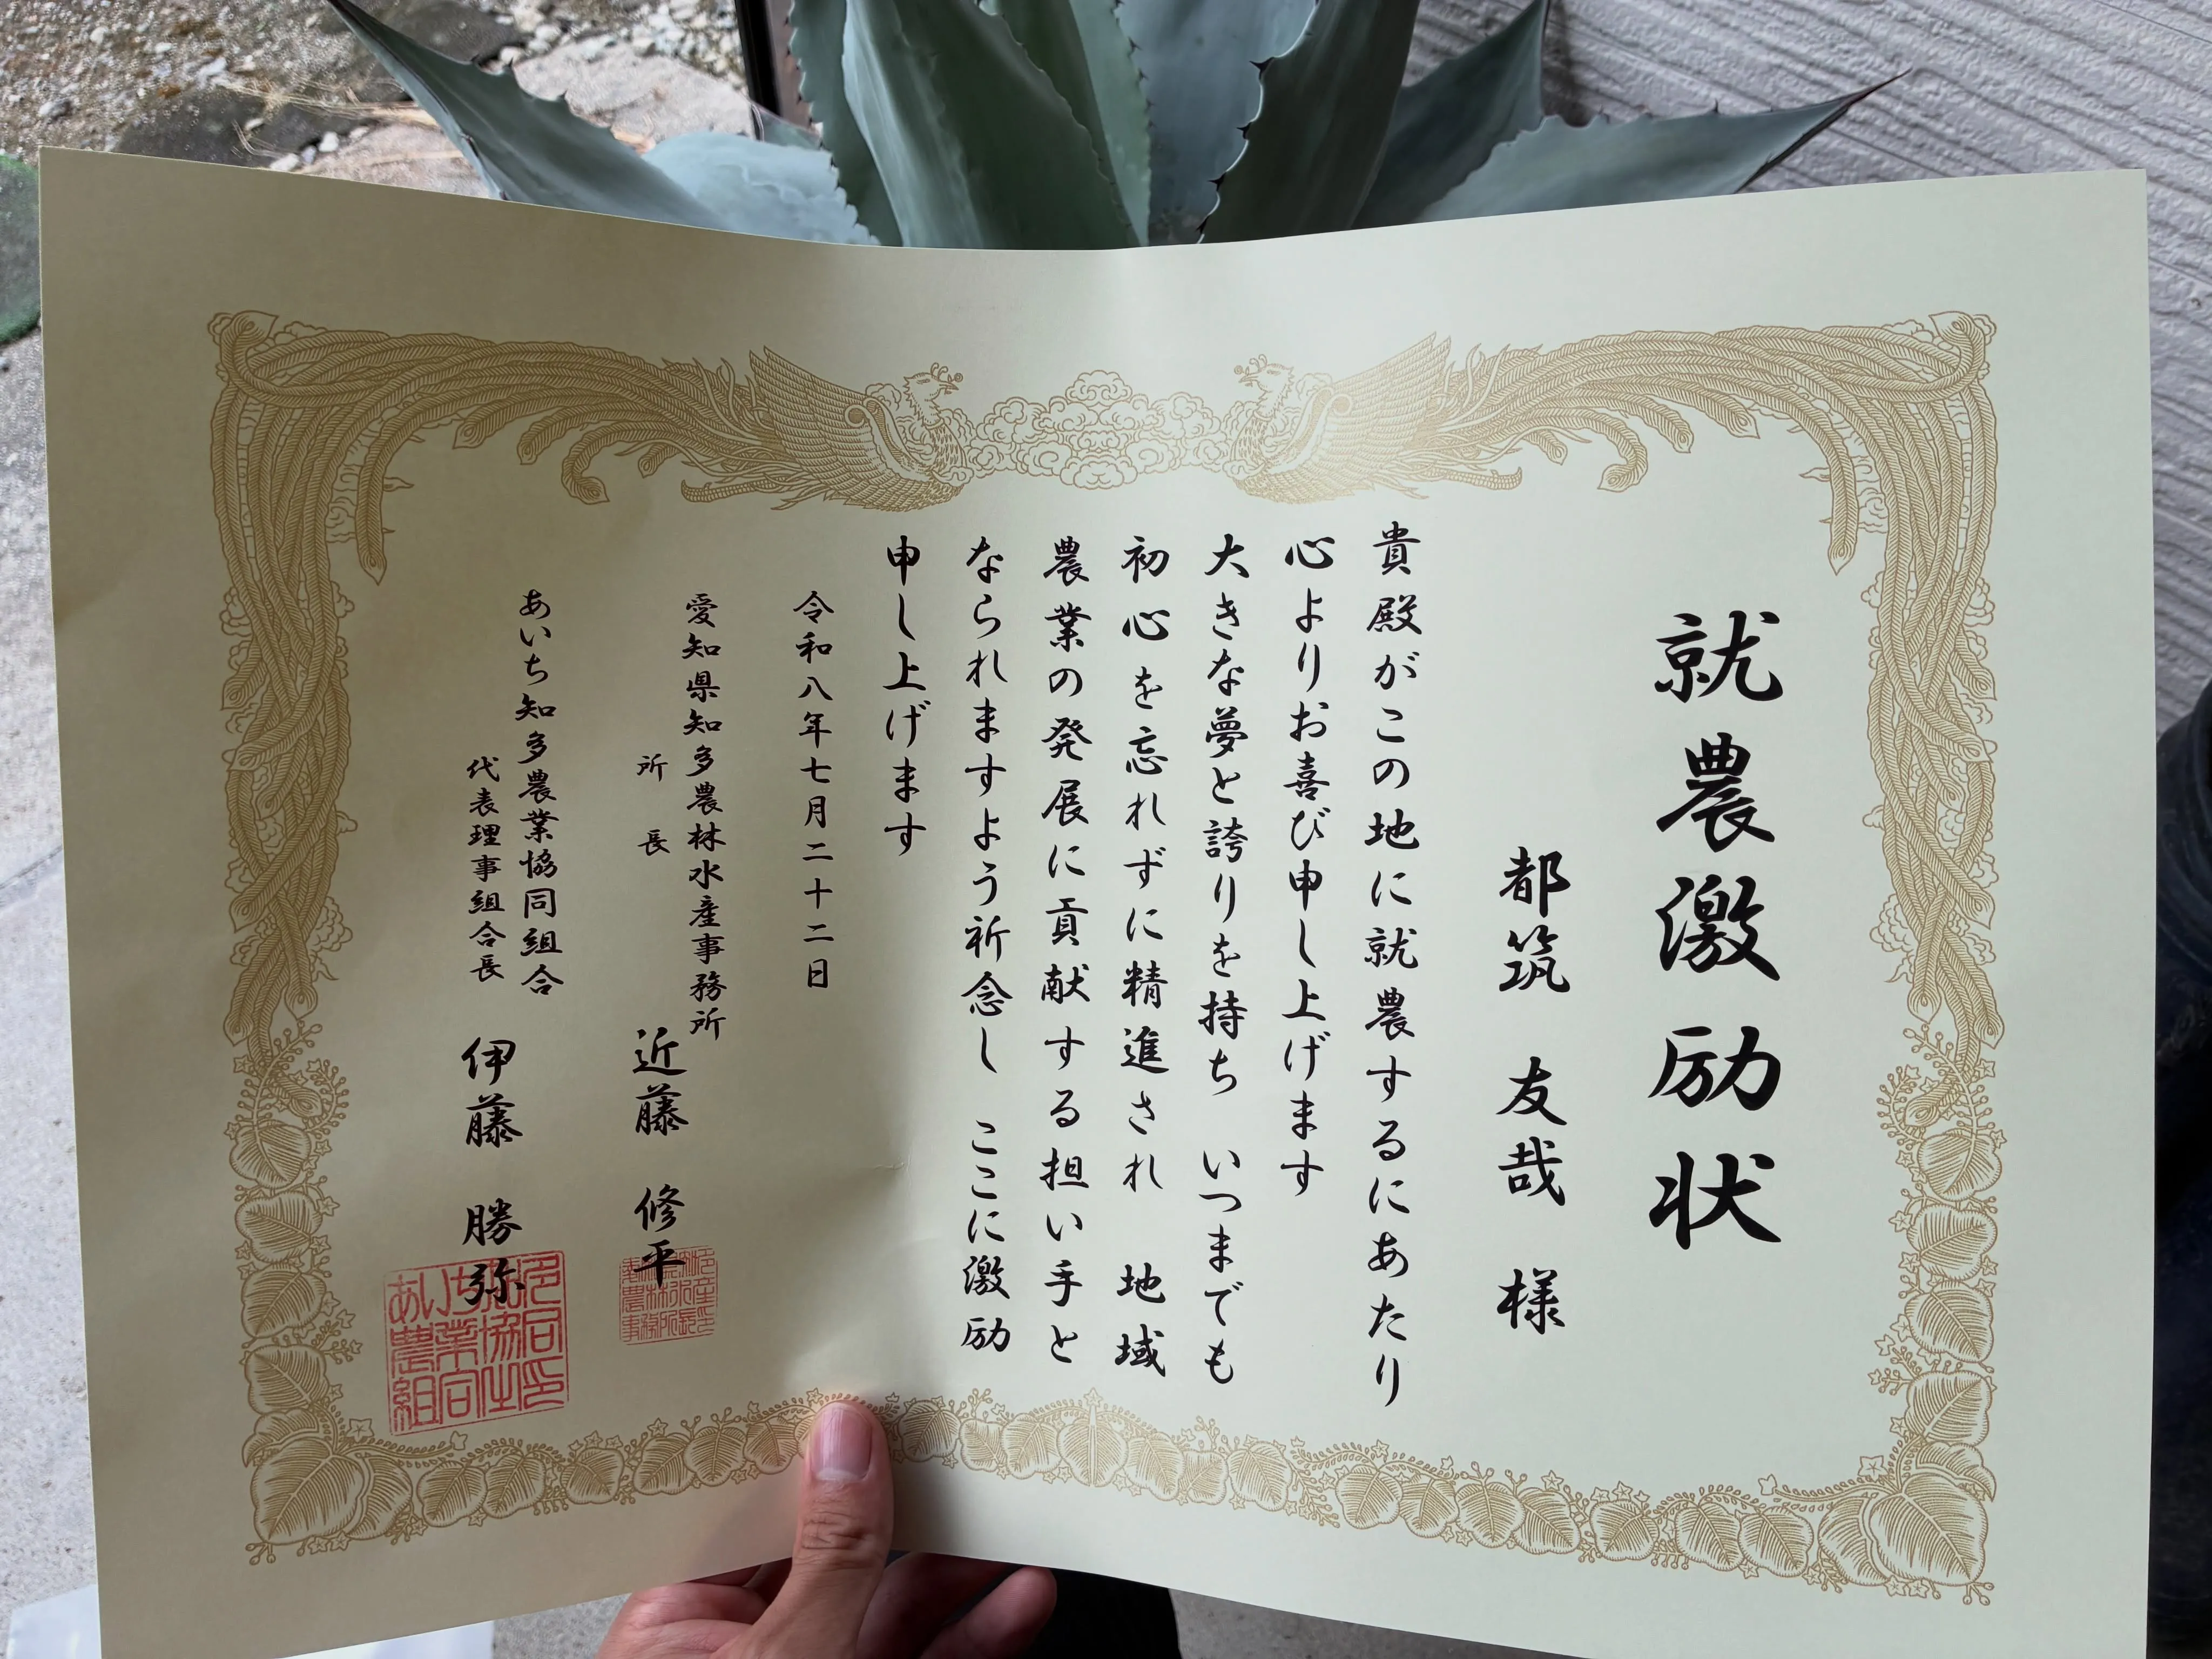 就農激励状
都筑 友哉 様
貴殿がこの地に就農するにあたり
心よりお喜び申し上げます
大きな夢と誇りを持ち いつまでも
初心を忘れずに精進され 地域
農業の発展に貢献する担い手と
なられますよう祈念し ここに激励
申し上げます
令和八年七月二十二日
愛知県知多農林水産事務所
所長 近藤 修平
あいち知多農業協同組合
代表理事組合長 伊藤 勝弥